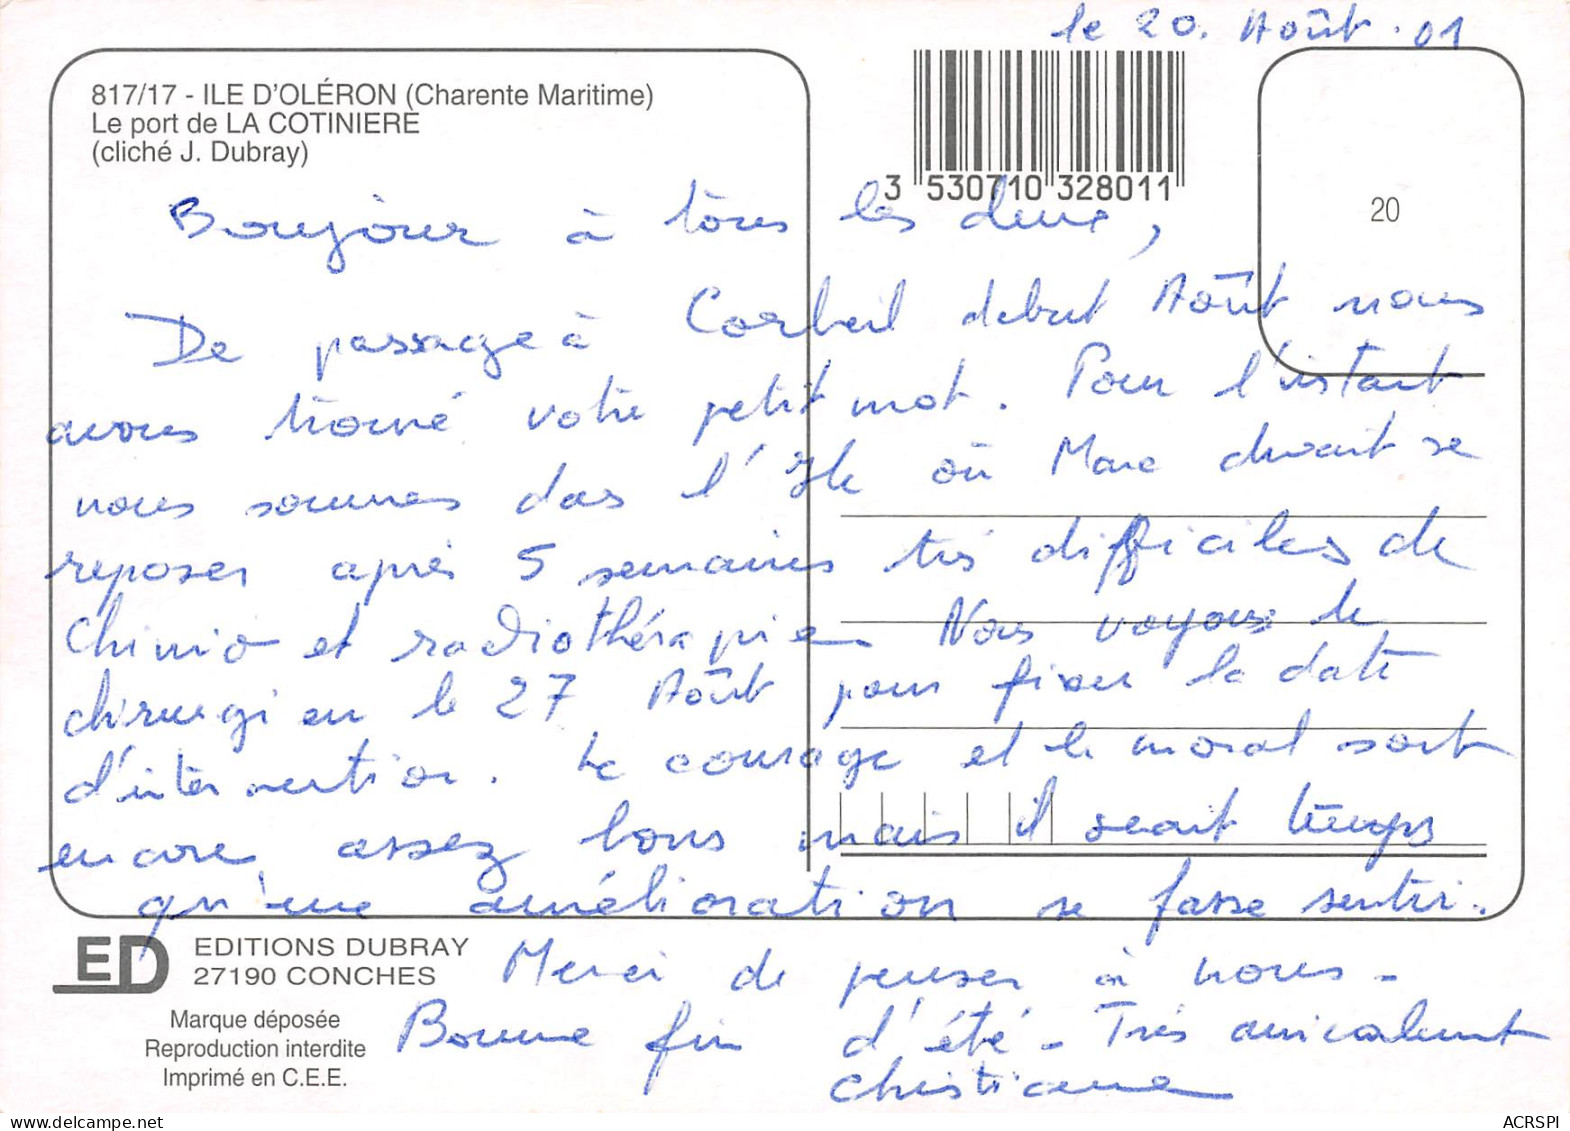 le 20. Août. 01
817/17 - ILE D'OLÉRON (Charente Maritime)
Le port de LA COTINIERE
(cliché J. Dubray)
3 530710 328011
20
Bonjour à tous les deux,
De passage à Corbeil debut Août nous
avons trouvé votre petit mot. Pour l'instant
nous sommes dans l'Ile où Marc devrait se
reposer après 5 semaines très difficiles de
Chimio et radiothérapie Nous voyons le
chirurgien le 27 Août pour fixer la date
d'intervention. Le courage et le moral sont
encore assez bons mais il serait temps
qu'une amélioration se fasse sentir.
Merci de penser à nous -
Bonne fin d'été - Très amicalement
Christiane
ED
EDITIONS DUBRAY
27190 CONCHES
Marque déposée
Reproduction interdite
Imprimé en C.E.E.
ACRSPI